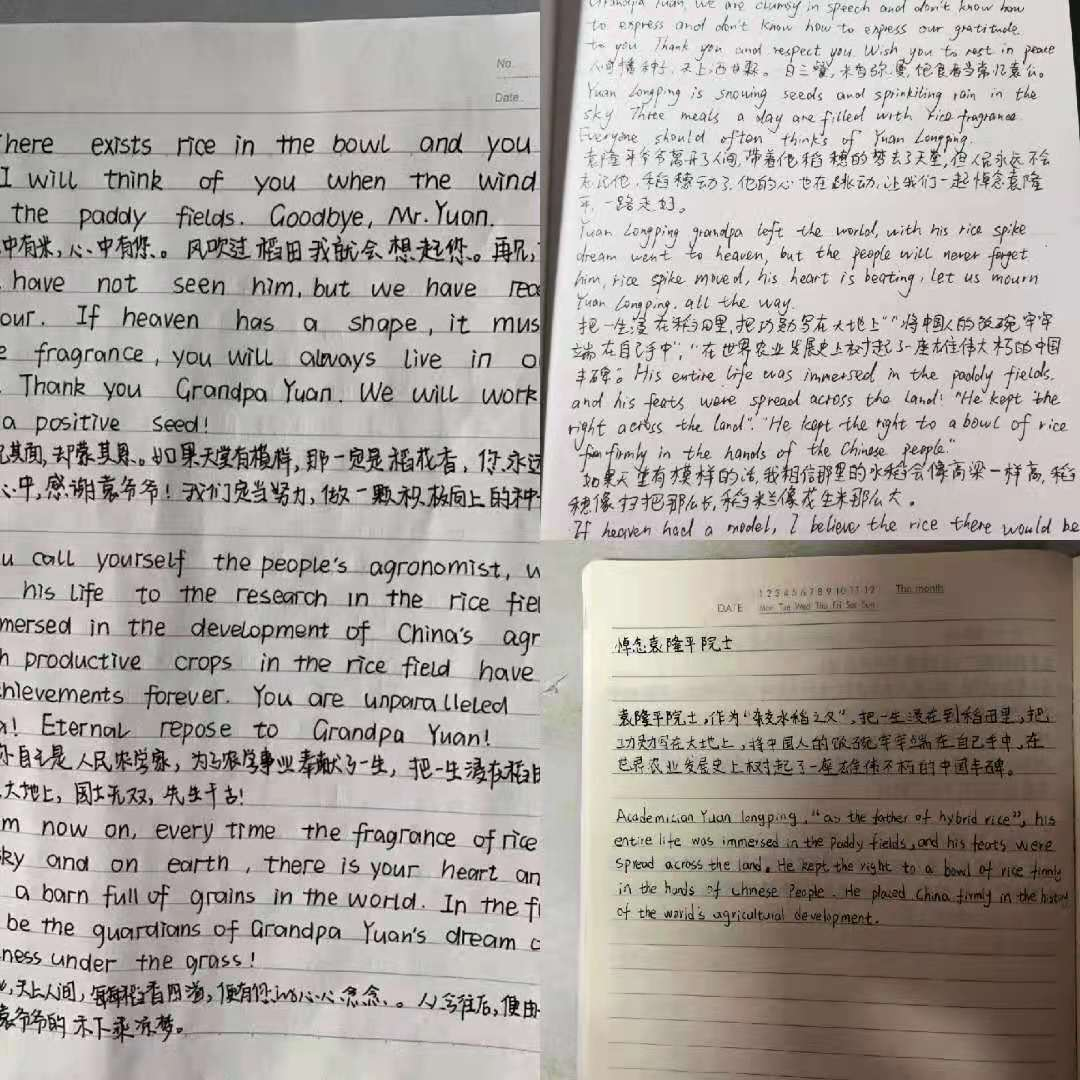 No.
Date.
here exists rice in the bowl and you
I will think of you when the wind
the paddy fields. Goodbye, Mr. Yuan.
中有米，心中有你。风吹过稻田我就会想起你。再见，
have not seen him, but we have rea
our. If heaven has a shape, it mus
fragrance, you will always live in o
Thank you Grandpa Yuan. We will work
a positive seed!
其面，却蒙其恩。如果天堂有模样，那一定是稻花香，你永远
心中，感谢袁爷爷！我们定当努力，做一颗积极向上的种
u call yourself the people's agronomist, w
his life to the research in the rice fiel
mersed in the development of China's agr
h productive crops in the rice field have
hievements forever. You are unparalleled
a! Eternal repose to Grandpa Yuan!
你自主是人民农学家，为了农学事业奉献了一生，把一生浸在稻田
大地上，国士无双，先生千古！
m now on, every time the fragrance of rice
ky and on earth, there is your heart an
a barn full of grains in the world. In the fi
be the guardians of Grandpa Yuan's dream o
ness under the grass!
天上人间，每稻香四溢，便有你的心心念念。从今往后，便由
袁爷爷的禾下乘凉梦。
Grandpa Yuan, we are clumsy in speech and don't know how
to express and don't know how to express our gratitude
to you. Thank you and respect you. Wish you to rest in peace
一日三餐，米香弥漫，饱食者当常忆袁公。
Yuan Longping is snowing seeds and sprinkiting rain in the
sky. Three meals a day are filled with rice fragrance.
Everyone should often thinks of Yuan Longping.
袁隆平爷爷离开了人间，带着他稻穗的梦去了天堂，但人民永远不会
忘记他，稻穗动了，他的心也在跳动，让我们一起悼念袁隆
平，一路走好。
Yuan Longping grandpa left the world, with his rice spike
dream went to heaven, but the people will never forget
him, rice spike moved, his heart is beating, let us mourn
Yuan Longping, all the way.
把一生浸在稻田里，把功勋写在大地上“”将中国人的饭碗牢牢
端在自己手中”，“在世界农业发展史上树起了一座雄伟不朽的中国
丰碑”。His entire life was immersed in the paddy fields.
and his feats were spread across the land! "He kept the
right across the land". "He kept the right to a bowl of rice
firmly in the hands of the Chinese people."
如果天堂有模样的话，我相信那里的水稻会像高粱一样高，稻
穗像扫把那么长，稻米像花生米那么大。
If heaven had a model, I believe the rice there would be
1 2 3 4 5 6 7 8 9 10 11 12 The month
DATE Mon Tue Wed Thu Fri Sat Sun
悼念袁隆平院士
袁隆平院士，作为“杂交水稻之父”，把一生浸在到稻田里，把
功勋写在大地上，将中国人的饭碗牢牢端在自己手中，在
世界农业发展史上树起了一座雄伟不朽的中国丰碑。
Academician Yuan longping, "as the father of hybrid rice", his
entire life was immersed in the paddy fields, and his feats were
spread across the land. He kept the right to a bowl of rice firmly
in the hands of Chinese People. He placed China firmly in the history
of the world's agricultural development.